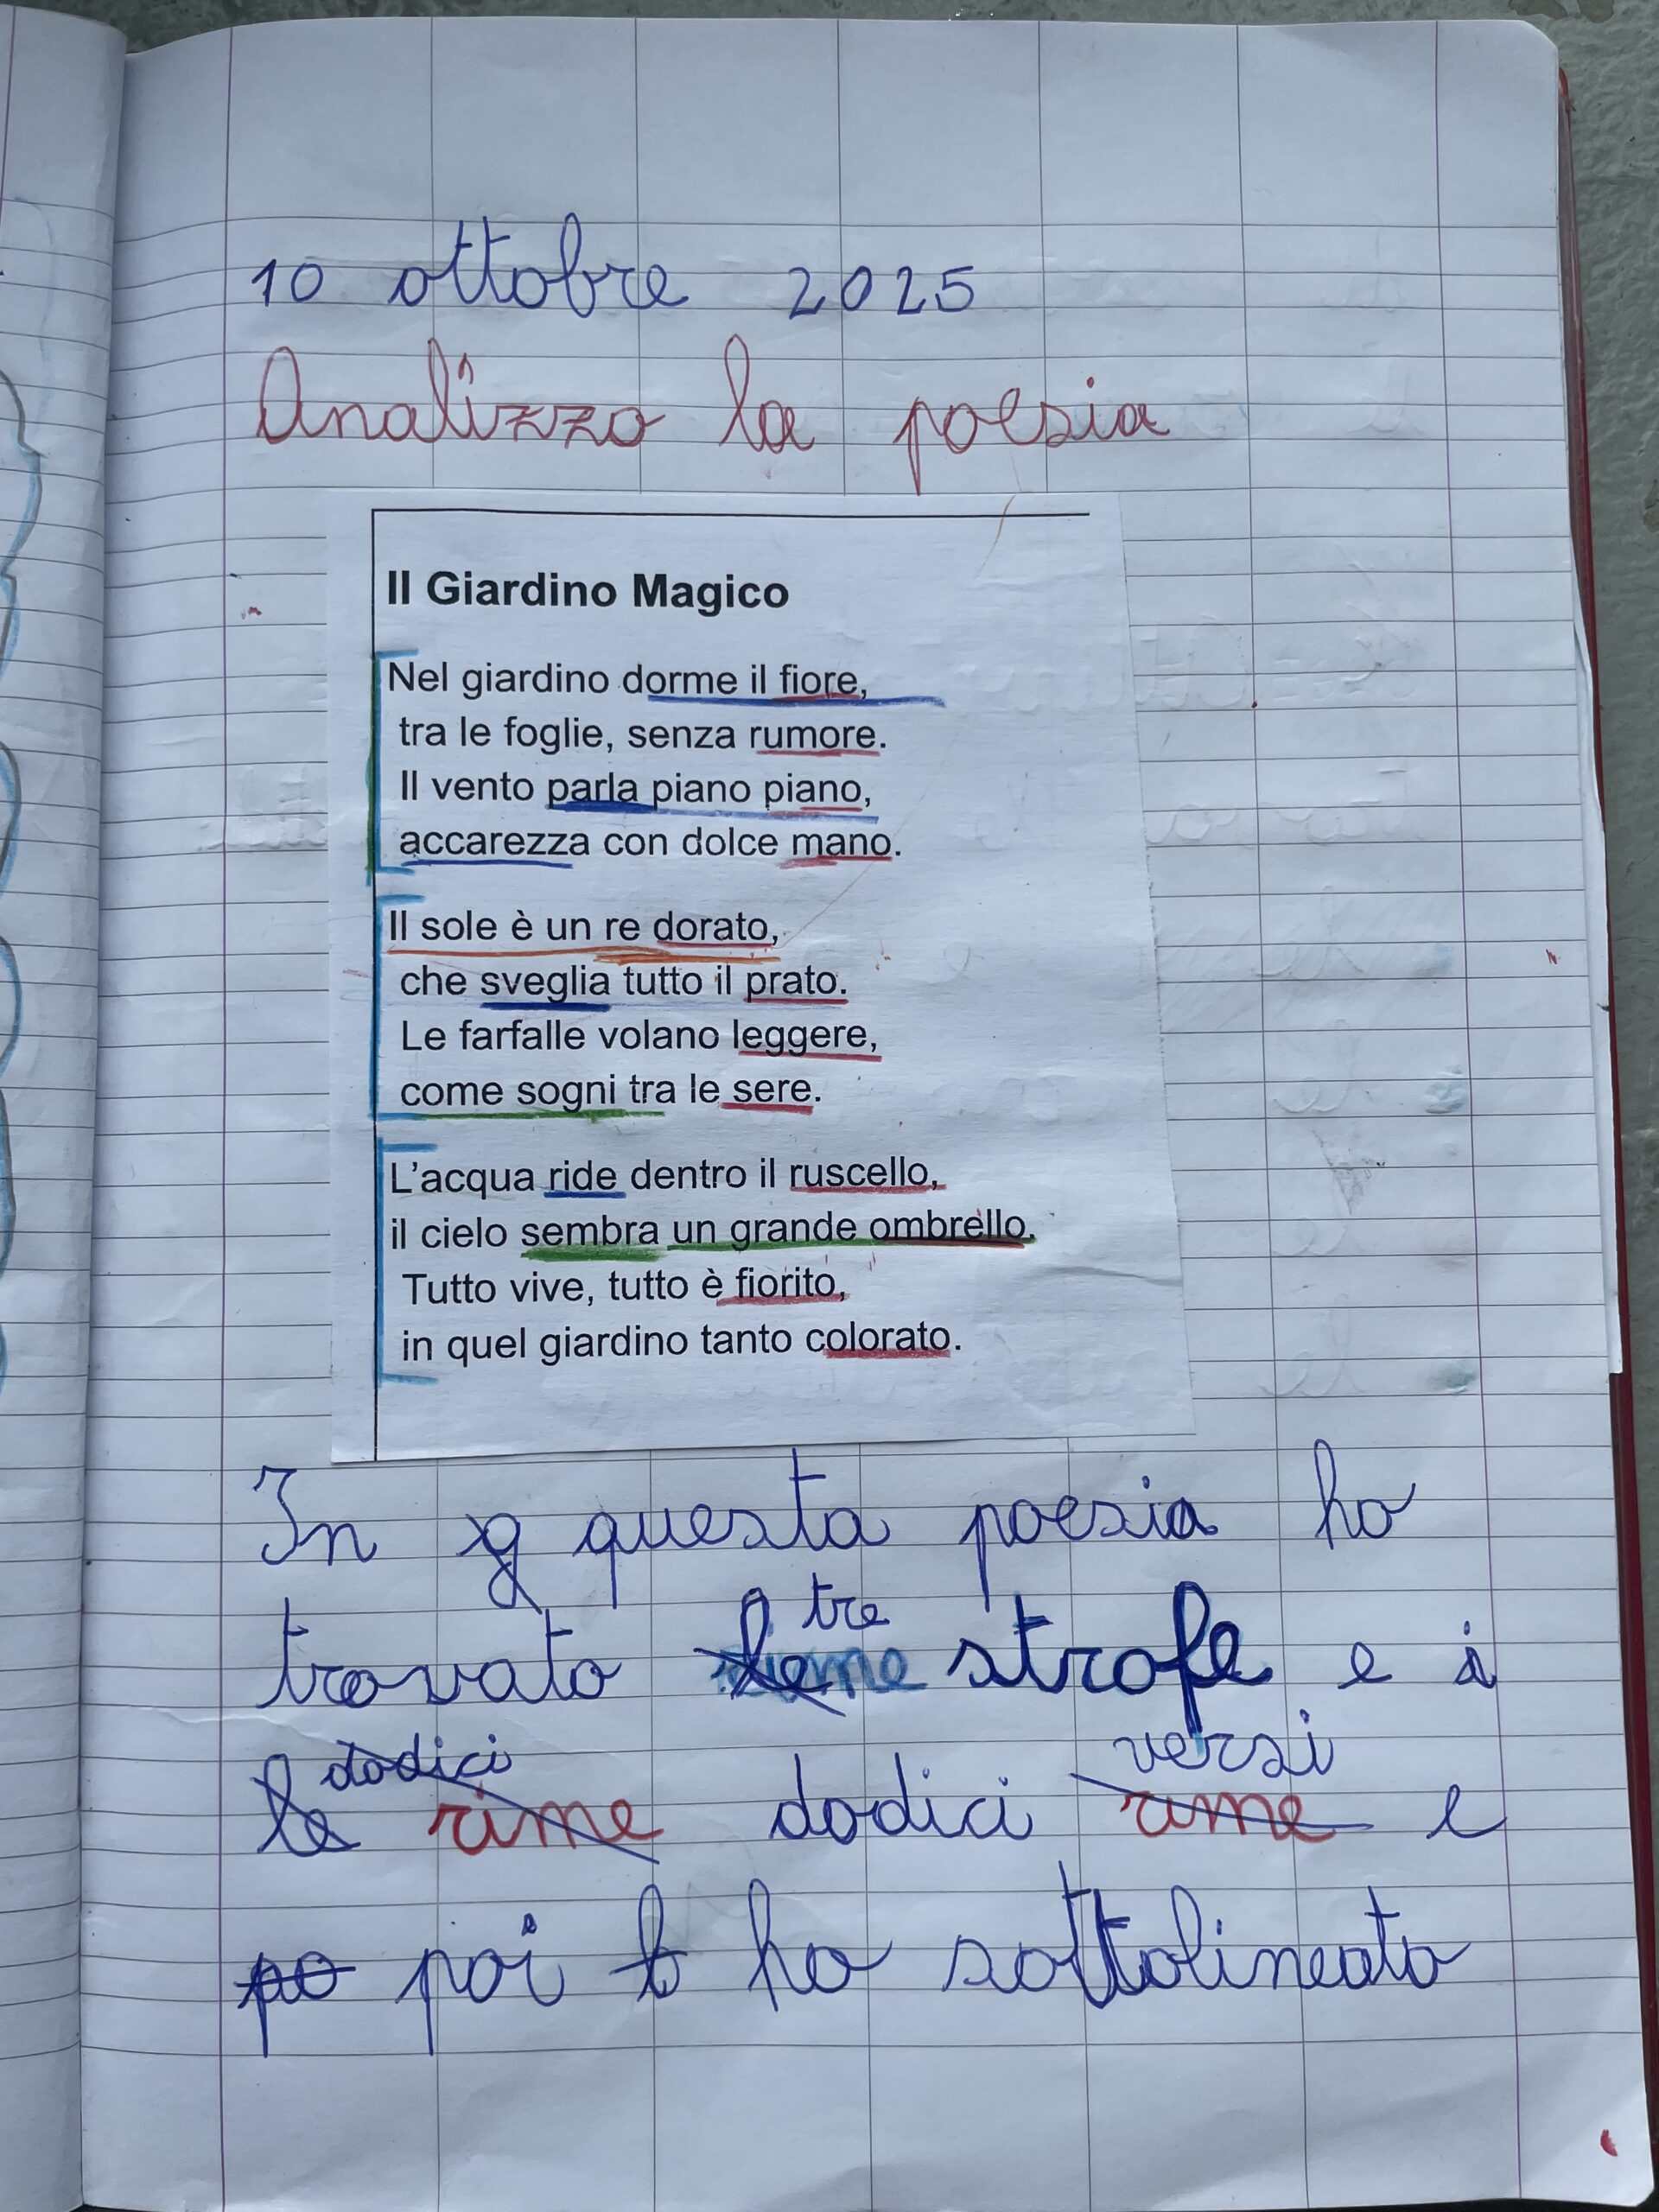 10 ottobre 2025
Analizzo la poesia
Il Giardino Magico
Nel giardino dorme il fiore,
tra le foglie, senza rumore.
Il vento parla piano piano,
accarezza con dolce mano.
Il sole è un re dorato,
che sveglia tutto il prato.
Le farfalle volano leggere,
come sogni tra le sere.
L'acqua ride dentro il ruscello,
il cielo sembra un grande ombrello.
Tutto vive, tutto è fiorito,
in quel giardino tanto colorato.
In q questa poesia ho
tre
trovato le strofe e i
dodici versi
le rime dodici rime e
po poi ho sottolineato